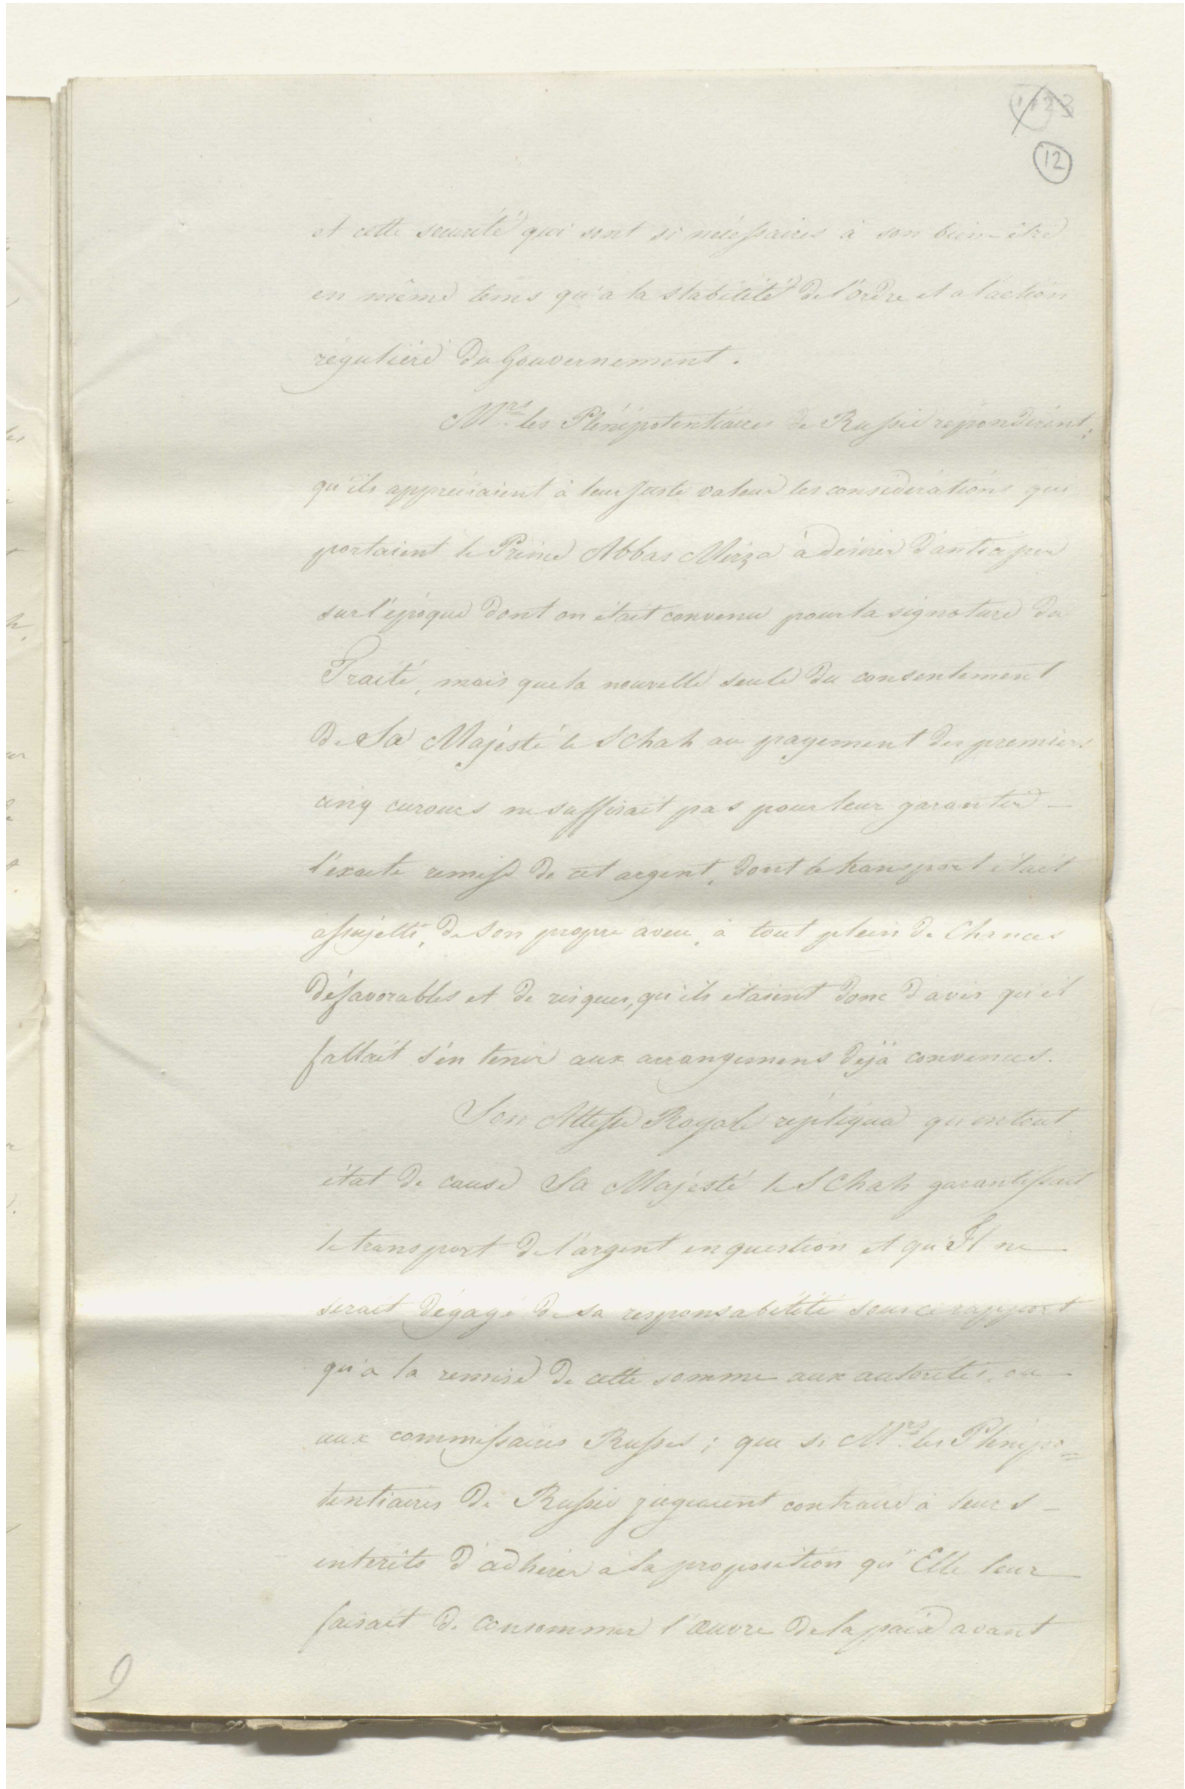 123
12
et cette securité qui sont si nécessaires à son bien-être
en même tems qu'a la stabilité de l'ordre et a l'action
régulière du Gouvernement.
Mrs les Plénipotentiaires de Russie repondirent;
qu'ils appréciaient à leur juste valeur les considérations qui
portaient le Prince Abbas Mirza à désirer d'anticiper
sur l'époque dont on était convenu pour la signature du
Traité, mais que la nouvelle seule du consentement
de Sa Majésté le Schah au payement des premiers
cinq curoucs ne suffisait pas pour leur garantir
l'éxacte remise de cet argent, dont le transport était
assujetti, de son propre aveu, à tout plein de Chances
défavorables et de risques, qu'ils etaient donc d'avis qu'il
fallait s'en tenir aux arrangemens déjà convenus.
Son Altesse Royale répliqua qu'en tout
état de cause Sa Majésté le Schah garantissait
le transport de l'argent en question et qu'Il ne
serait dégagé de sa responsabilité sous ce rapport
qu'a la remise de cette somme aux autorités, ou
aux commissaires Russes; que si Mrs les Plénipo=
tentiaires de Russie jugeaient contraire à leurs
intérêts d'adhérer à la proposition qu'Elle leur
faisait de consommer l'œuvre de la paix avant
9